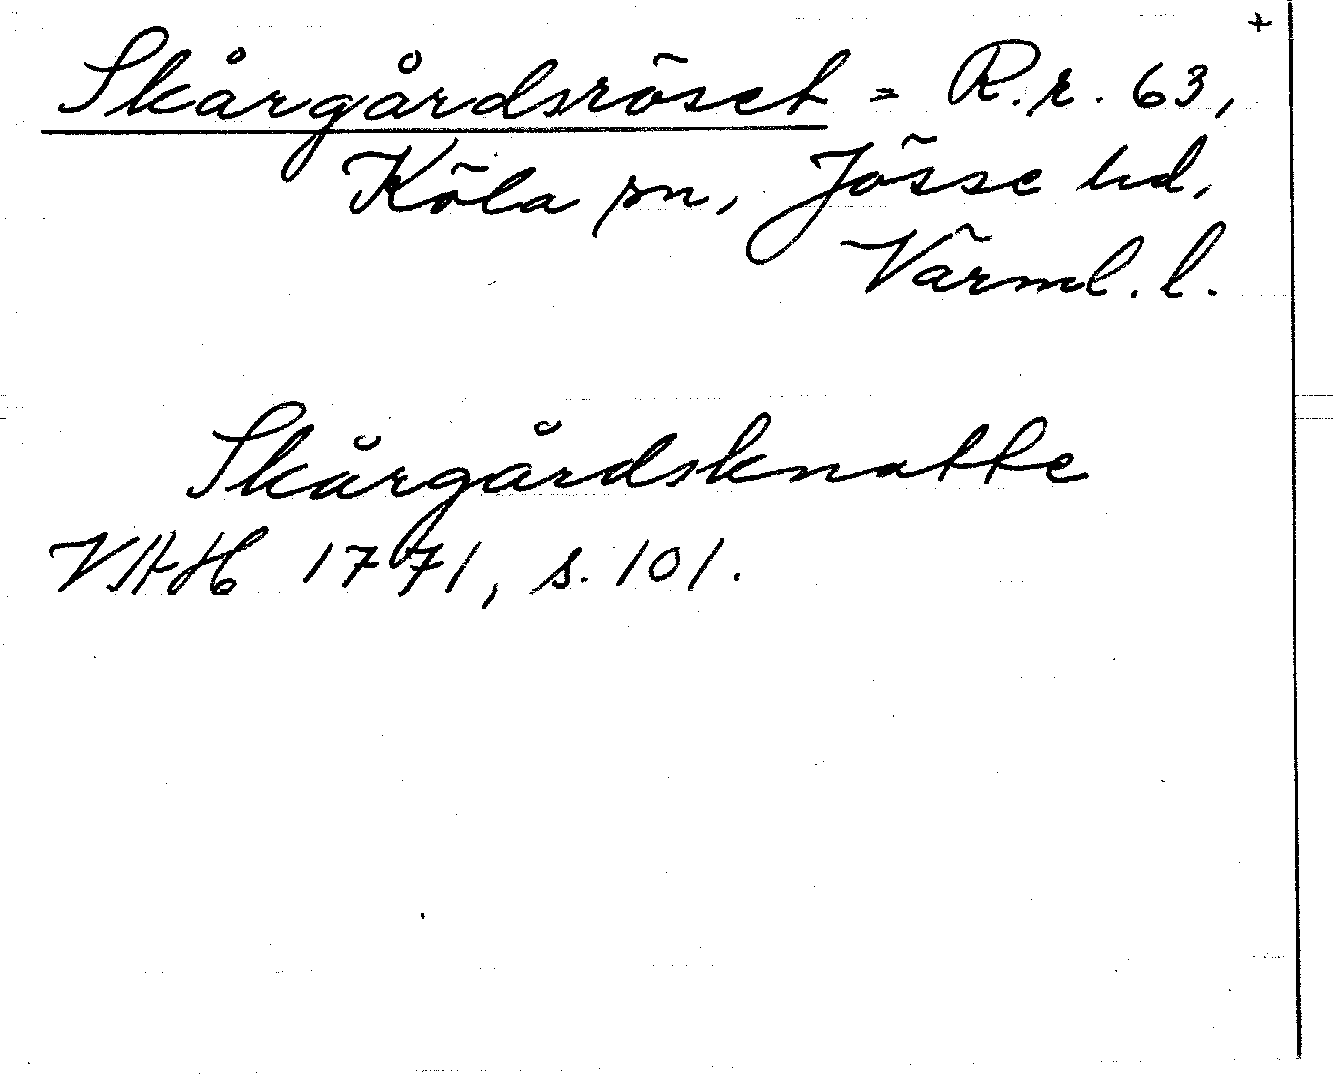 +
Skårgårdsröset = R.r. 63,
Köla sn, Jösse hd,
Värml. l.
Skårgårdsknatte
VAH 1771, s. 101.